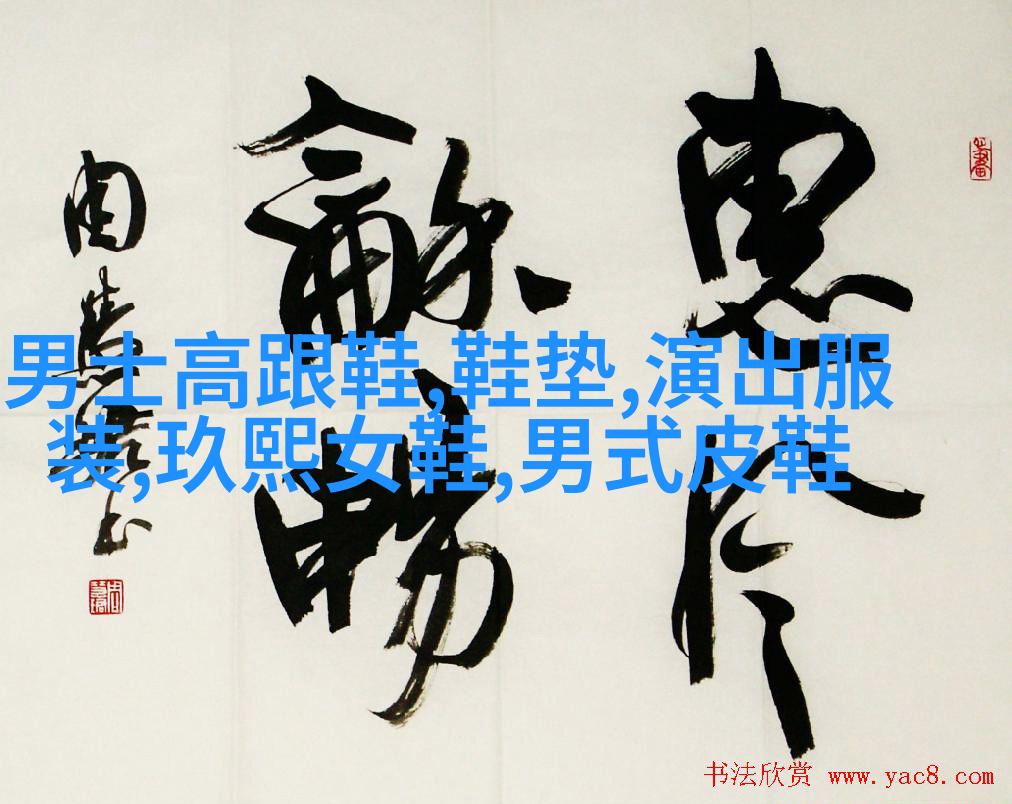 惠风
龢暢
周慧珺书
男士高跟鞋,鞋垫,演出服
装,玖熙女鞋,男式皮鞋
书法欣赏 www.yac8.com